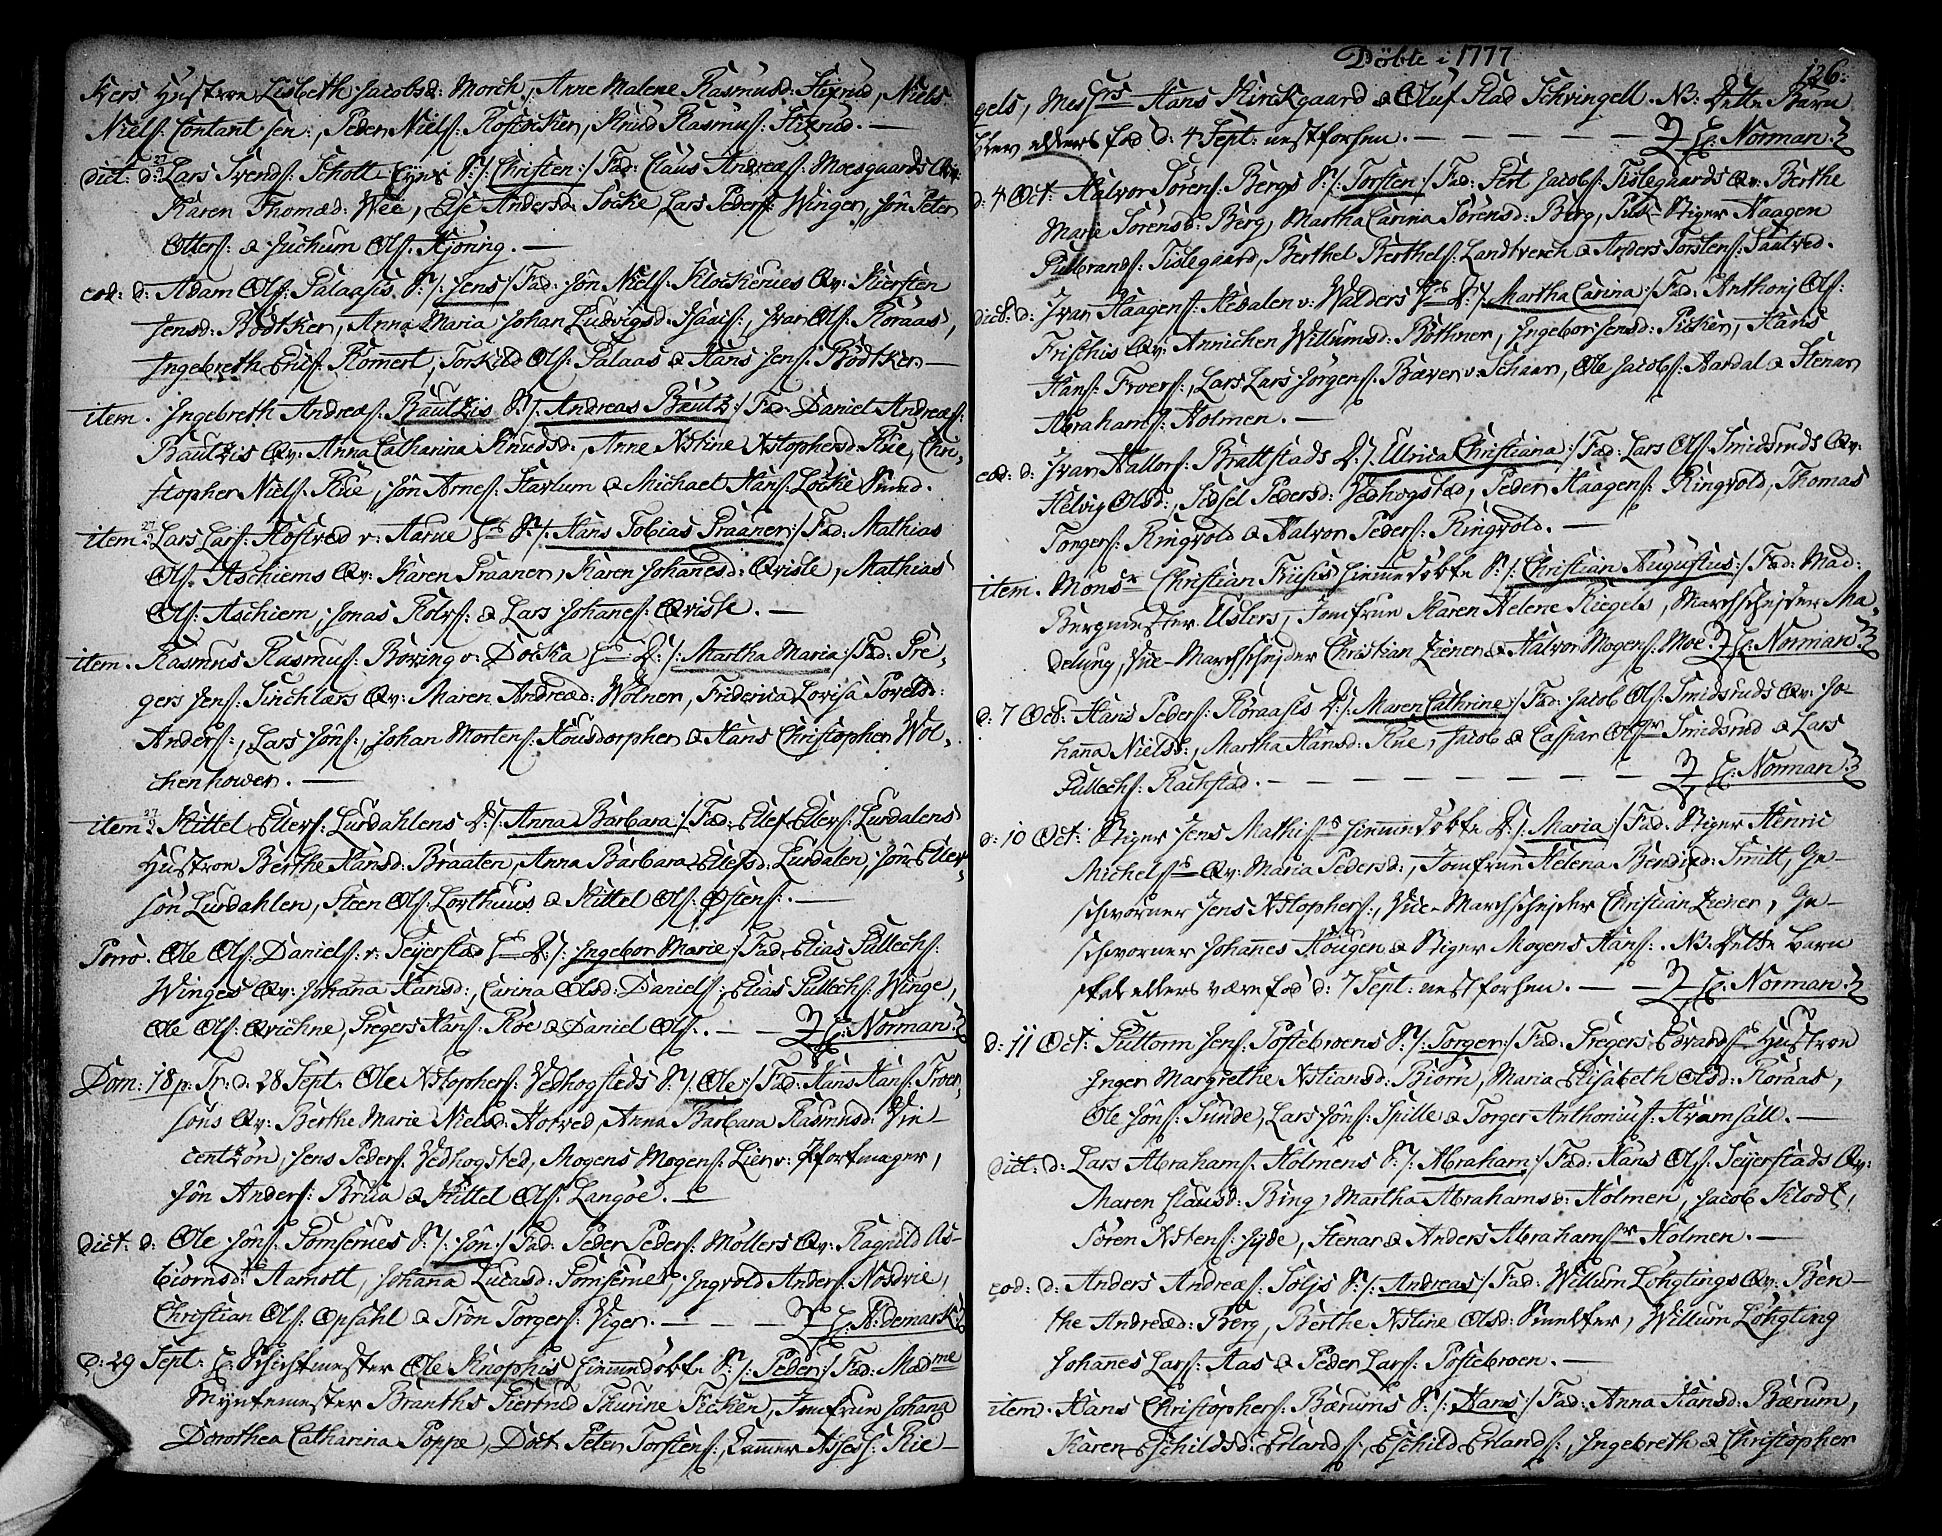 Kers Hustroe Lisbeth Jacobsd: Morch, Anne Malene Rasmusd: Stixrud, Niels
Nielſ: Contant sen:, Peder Nielſ: Rostocker, Knud Rasmuſ: Stixrud. —
dict: d: Lars Svendſ: Schott S: /: Christen :/ Fad: Claus Andreæſ: Moesgaards Qv:
Karen Thomæd: Wee, Else Andersd: Locke, Lars Pederſ: Winger, Jôn Peter
Otterſ: & Juchum Olſ: Kjoning. —
eod: d: Adam Olſ: Palaasis S: /: Jens :/ Fad: Jôn Nielſ: Klockerues Qv: Kiersten
Jensd: Bodtker, Anna Maria Johan Ludvigsd: Isaacſ:, Ivar Olſ: Roraas,
Ingebreth Ericſ: Romert, Torkild Olſ: Palaas & Hans Jenſ: Bodtker —
item. Ingebreth Andreæſ: Bautzis S: /: Andreas Bautz :/ Fad: Daniel Andreæſ:
Bautzis Qv: Anna Catharina Knudsd:, Anne Xstine Xstophersd: Rue, Chri-
stopher Nielſ: Rue, Jôn Arneſ: Havlum & Michael Hanſ: Locke Smed.
item. Lars Larſ: Hostvæd v: Aarue S: /: Hans Tobias Praaner :/ Fad: Mathias
Olſ: Aschiems Qv: Karen Praaner, Karen Johanesd: Qvisle, Mathias
Olſ: Aschiem, Jonas Rolvſ: & Lars Johaneſ: Qvisle. —
item. Rasmus Rasmuſ: Boving v: Docka D: /: Martha Maria :/ Fad: Pre-
gers Jenſ: Sinchlærs Qv: Maren Andreæd: Wolner, Friderica Lovisa Povelsd:
Anderſ:, Lars Jônſ:, Johan Mortenſ: Housdorpher & Hans Christopher Wol-
chenhower. —
item Kittel Ellefſ: Lurdahlens D: /: Anna Barbara :/ Fad: Ellef Ellefſ: Lurdalens
Hustroe Berthe Hansd: Braaten, Anna Barbara Ellefsd: Lurdalen, Jôn Ellef-
sôn Lurdahlen, Steen Olſ: Lovthuus & Kittel Olſ: Østenſ:. —
Porro. Ole Olſ: Danielſ: v: Seyerstad D: /: Ingebor Marie :/ Fad: Elias Pullechſ:
Winges Qv: Johaña Hansd:, Carina Olsd: Danielſ:, Elias Pullechſ: Winge,
Ole Olſ: Qvichne, Pregers Hanſ: Roe & Daniel Olſ:. — — C: Norman.
Dom: 18 p: Tr: d: 28 Sept. Ole Xstopherſ: Vedhogsteds S: /: Ole :/ Fad: Hans Hanſ: Froer-
sôns Qv: Berthe Marie Nielsd: Hotved, Anna Barbara Rasmusd: Vin-
centzôn, Jens Pederſ: Vedhogsted, Mogens Mogenſ: Lier v: Pfortmager,
Jôn Anderſ: Brua & Kittel Olſ: Langôe. —
dict: d: Ole Jônſ: Pomserues S: /: Jôn :/ Fad: Peder Pederſ: Mollers Qv: Ragnild As-
biornsd: Aamott, Johana Lucasd: Pomserue, Ingvold Anderſ: Nosdvie,
Christian Olſ: Opsahl & Trôn Torgerſ: Viger. — — — C: N: demark.
d: 29 Sept: C: Schichtmester Ole Knophis hiemmedobte S: /: Peder :/ Fad: Madme
Myntemester Branths Siertrud Thurine Ficken, Jomfrue Johana
Dorothea Catharina Poppe, Doct: Peter Torstenſ:, Kammer Asseſſ: Rie-
Döbte i 1777
126.
gels, Messrs Hans Kirckgaard & Oluf Rad Schvingell. NB: Dette Barn
blev ellers fød d: 4 Sept: nestforhen. — — — C: Norman.
d: 4 Oct: Halvor Sôrenſ: Bergs S: /: Torsten :/ Fad: Pert Jacobſ: Tislegaards Qv: Berthe
Marie Sôrensd: Berg, Martha Carina Sôrensd: Berg, Puk-Stiger Haagen
Pulbrandſ: Tislegaard, Berthel Berthelſ: Landtverch & Anders Torstenſ: Sautved.
dict: d: Ivar Haagenſ: Hesalen v: Walders D: /: Martha Carina :/ Fad: Anthonj Olſ:
Frischis Qv: Annichen Willumsd: Bothner, Ingebor Jensd: Picker, Hans
Hanſ: Froerſ:, Lars Lars Jorgenſ: Bæver v: Schaar, Ole Jacobſ: Aardal & Stenar
Abrahamſ: Holmen. —
eod: d: Ivar Hallorſ: Brattstads D: /: Ulrica Christiana :/ Fad: Lars Olſ: Smidsruds Qv:
Helvig Olsd:, Sidsel Pedersd: Vedhogstad, Peder Haagenſ: Ringvold, Thomas
Torgerſ: Ringvold & Halvor Pederſ: Ringvold. —
item. Monsr Christian Friisis hiemmedobte S: /: Christian Augustus :/ Fad: Mad:
Bergmester Uslers, Jomfrue Karen Helene Riegels, Marchschejder Ma-
delung, Vice-Marchschejder Christian Ziener & Halvor Mogenſ: Moe. C: Norman.
d: 7 Oct: Hans Pederſ: Roraasis D: /: Maren Cathrine :/ Fad: Jacob Olſ: Smidsruds Qv: Jo-
hanna Nielsd:, Martha Hansd: Rue, Jacob & Casspar Olſ: Smidsrud & Lars
Pullechſ: Rachstad. — — — — — C: Norman.
d: 10 Oct: Stiger Jens Mathiſ: hiemmedobte D: /: Maria :/ Fad: Stiger Henric
Michelſ: Qv: Maria Pedersd:, Jomfrue Helena Bendixd: Smitt, Ge-
schworner Jens Xstopherſ:, Vice-Marchschejder Christian Ziener, Ge-
schworner Johannes Hougen & Stiger Mogens Hanſ:. NB: Dette barn
skal ellers være fød d: 7 Sept: nestforhen. — — C: Norman.
d: 11 Oct: Puttorm Jenſ: Postebroens S: /: Torger :/ Fad: Pregers Edvardſ: Hustroe
Inger Margrethe Xstiansd: Biorn, Maria Elisabeth Olsd: Roraas,
Ole Jônſ: Sunde, Lars Jônſ: Spille & Torger Anthoniuſ: Kvamsall. —
dict: d: Lars Abrahamſ: Holmens S: /: Abraham :/ Fad: Hans Olſ: Seyerstads Qv:
Maren Clausd: Bing, Martha Abrahamsd: Holmen, Jacob Klodt,
Sôren Xstenſ: Jyde, Stenar & Anders Abrahamſ: Holmen. —
eod: d: Anders Andreæſ: Soljs S: /: Andreas :/ Fad: Willum Lôhgtings Qv: Ben-
the Andreæd: Berg, Berthe Xstine Olsd: Smelter, Willum Lôhgting
Johañes Larſ: Aas & Peder Larſ: Postebroen. —
item. Hans Christopherſ: Bærums S: /: Hans :/ Fad: Anna Hansd: Bærum,
Karen Eschildsd: Erlandſ:, Eschild Erlandſ:, Ingebreth & Christopher